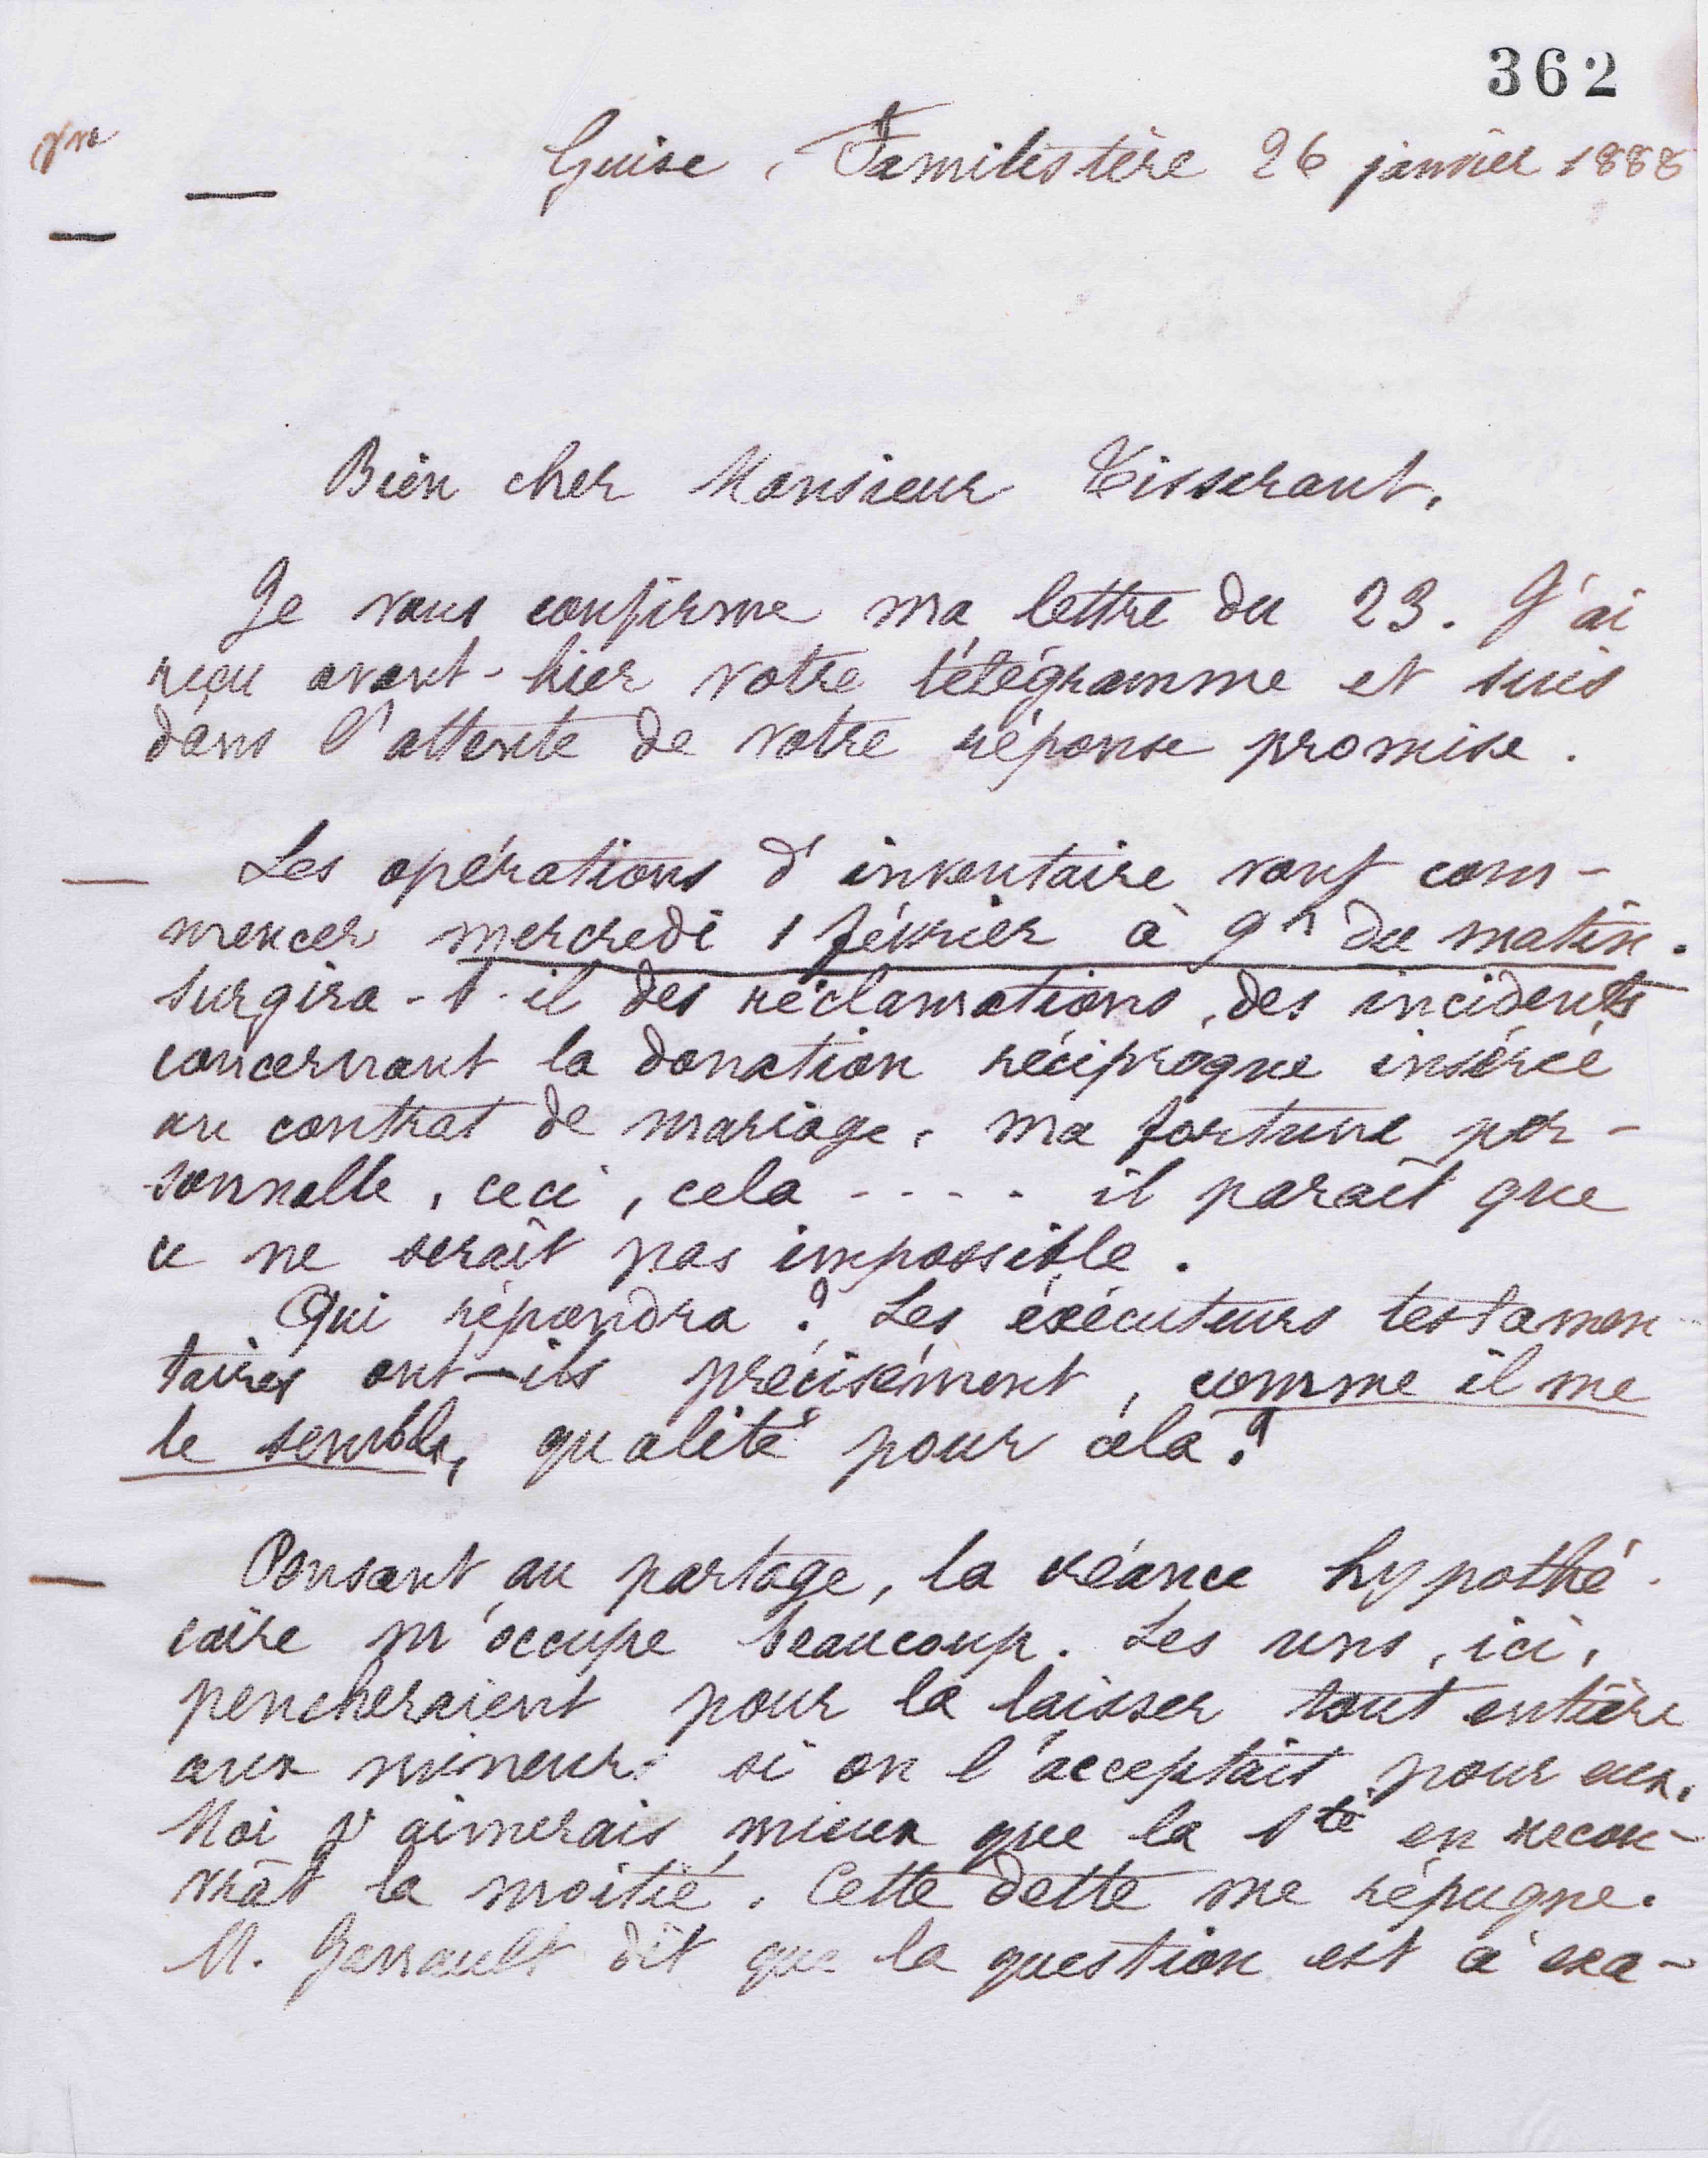 362
Guise, Familistère 26 janvier 1888
Bien cher Monsieur Tisserant,
Je vous confirme ma lettre du 23. J'ai
reçu avant-hier votre télégramme et suis
dans l'attente de votre réponse promise.
Les opérations d'inventaire vont com-
mencer mercredi 1 février à 9h du matin.
Surgira-t-il des réclamations, des incidents
concernant la donation réciproque insérée
au contrat de mariage, ma fortune per-
sonnelle, ceci, cela .... il paraît que
ce ne serait pas impossible.
Qui répondra ? Les exécuteurs testamen
taires ont-ils précisément, comme il me
le semble, qualité pour cela ?
Pensant au partage, la créance hypothé-
caire m'occupe beaucoup. Les uns, ici,
pencheraient pour la laisser tout entière
aux mineurs si on l'acceptait pour eux.
Moi j'aimerais mieux que la Sté en recou-
vrât la moitié. Cette dette me répugne.
M. dit que la question est à exa-